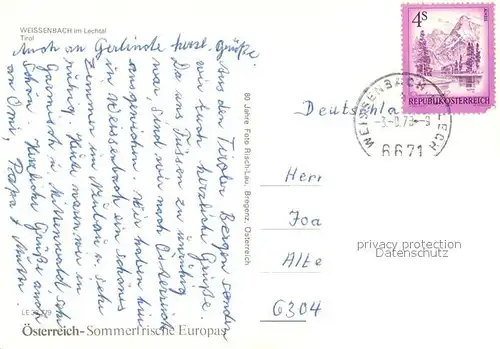 WEISSENBACH im Lechtal
Tirol
Auch an Gerlinde herzl. Grüße.
Aus den Tiroler Bergen senden
wir Euch herzliche Grüße.
Da uns Füssen zu unruhig
war, sind wir nach Österreich
ausgewichen. Wir haben hier
in Weissenbach ein schönes
Zimmer im
ruhig. Heute waren wir in
Garmisch u. Mittenwald, sehr
schön. Herzliche Grüße auch
an Omi, Papa + Mutti.
80 Jahre Foto Risch-Lau, Bregenz, Österreich
4S
REPUBLIK ÖSTERREICH
WEISSENBACH
LECH
6671
Deutschla
Herr
Alte
6304
privacy protection
Datenschutz
Österreich-Sommerfrische Europas